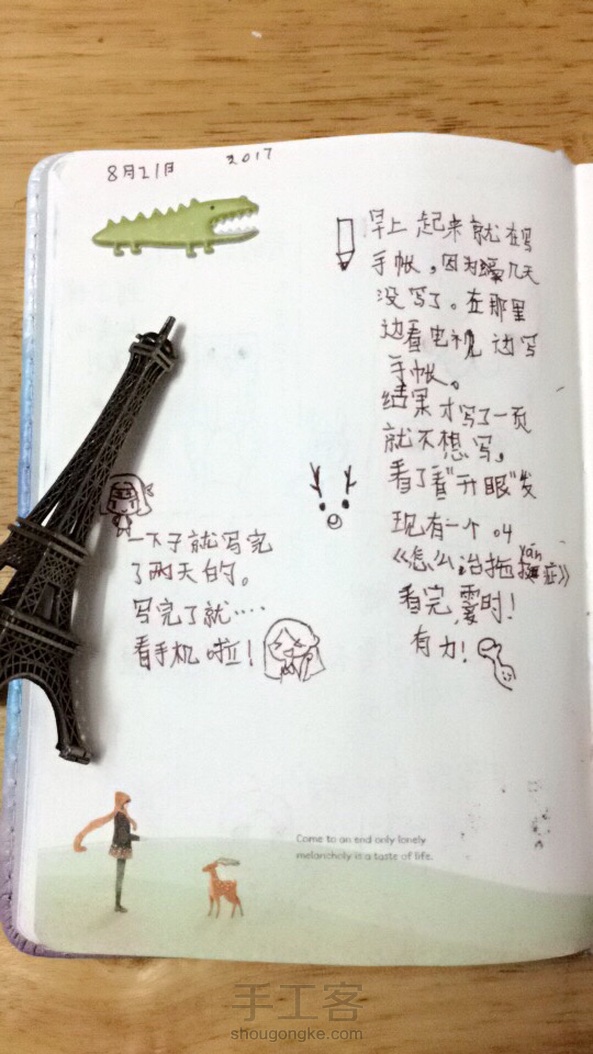 8月21日 2017
早上起来就在写
手帐,因为好几天
没写了。在那里
边看电视边写
手帐。
结果才写了一页
就不想写。
看了看"开眼"发
现有一个
《怎么治拖yán症》
看完,霎时!
有力!
一下子就写完
了两天的。
写完了就····
看手机啦!
Come to an end only lonely
melancholy is a taste of life.
手工客
shougongke.com